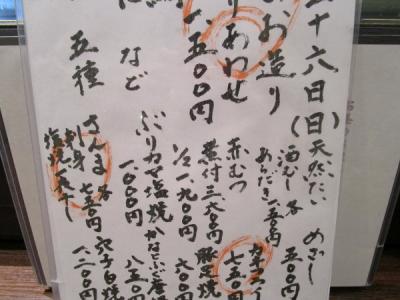 十六日(日)
お造り
りあわせ
一、五〇〇円
など
五種
天然だい
酒むし
あらだき
各
一、五〇〇円
めざし
五〇〇円
赤むつ
煮付三、六〇〇円
1/2一、九〇〇円
七五〇円
豚足焼
六〇〇円
ぶりカマ塩焼
一、〇〇〇円
八五〇円
さんま
刺身
塩焼
各
七五〇円
穴子白焼
一、二〇〇円